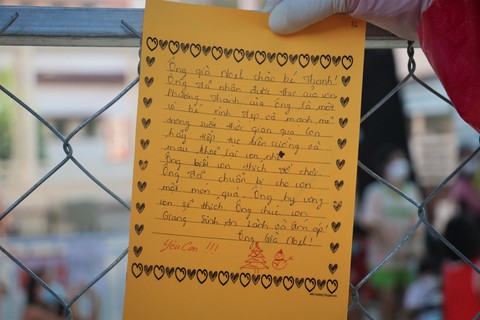 Ông già Noel chào bé Thanh!
Ông đã nhận được thư của con.
Phương Thanh của ông là một
cô bé xinh đẹp và mạnh mẽ
trong suốt thời gian qua. Con
hãy tiếp tục kiên cường và
mau khỏe lại con nhé
Ông biết con thích đồ chơi
Ông đã chuẩn bị cho con
một món quà. Ông hy vọng
con sẽ thích. Ông chúc con
Giáng Sinh An Lành và ấm áp!
Ông Già Noel!
Yêu Con !!!